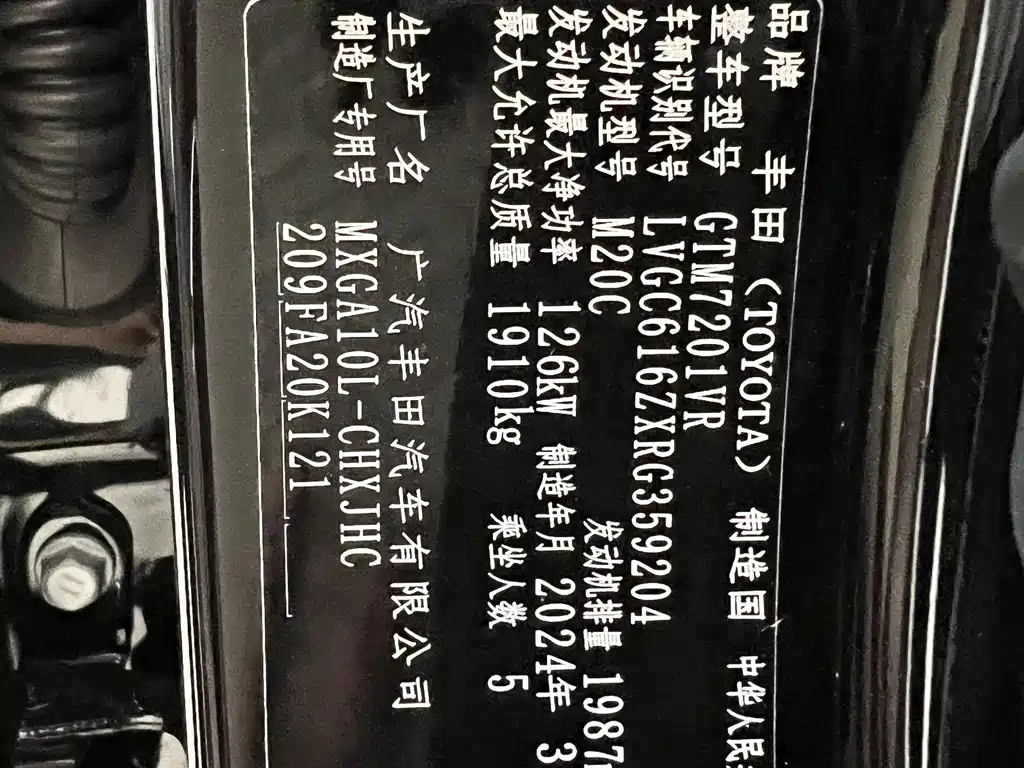 品牌 丰田（TOYOTA） 制造国 中华人民
整车型号 GTM7201VR
车辆识别代号 LVGC616ZXRG359204
发动机型号 M20C 发动机排量 1987
发动机最大净功率 126kW 制造年月 2024年 3
最大允许总质量 1910kg 乘坐人数 5
生产厂名 广汽丰田汽车有限公司
制造厂专用号 MXGA10L-CHXJHC
209FA20K121